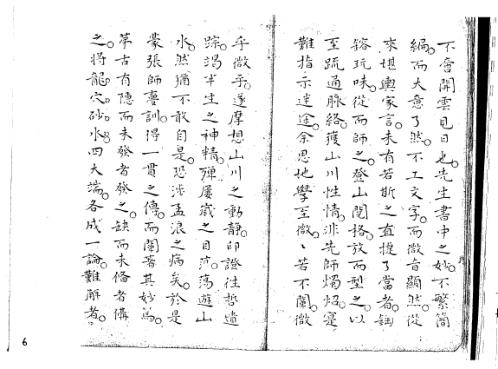 不啻開雲見日也先生書中之妙不繁簡
編而大意了然不工文字而微旨顯然從
來堪輿家言未有若斯之直捷了當者細
玩味從而師之登山閱格放而型之以
至疏通脉絡獲山川性情非先師燭炤
難指示迷途余思地學至微、若不闡微
乎微乎遂摩想山川之動靜印證往哲遺
踪竭半生之神精殫屢歲之目蕩遊山
水然猶不敢自是恐涉孟浪之病矣於是
蒙張師蔓訓得一貫之傳而闡著其妙為
筆古有隱而未發者發之缺而未備者備
之將龍穴砂水四大端各成一論難解者
6